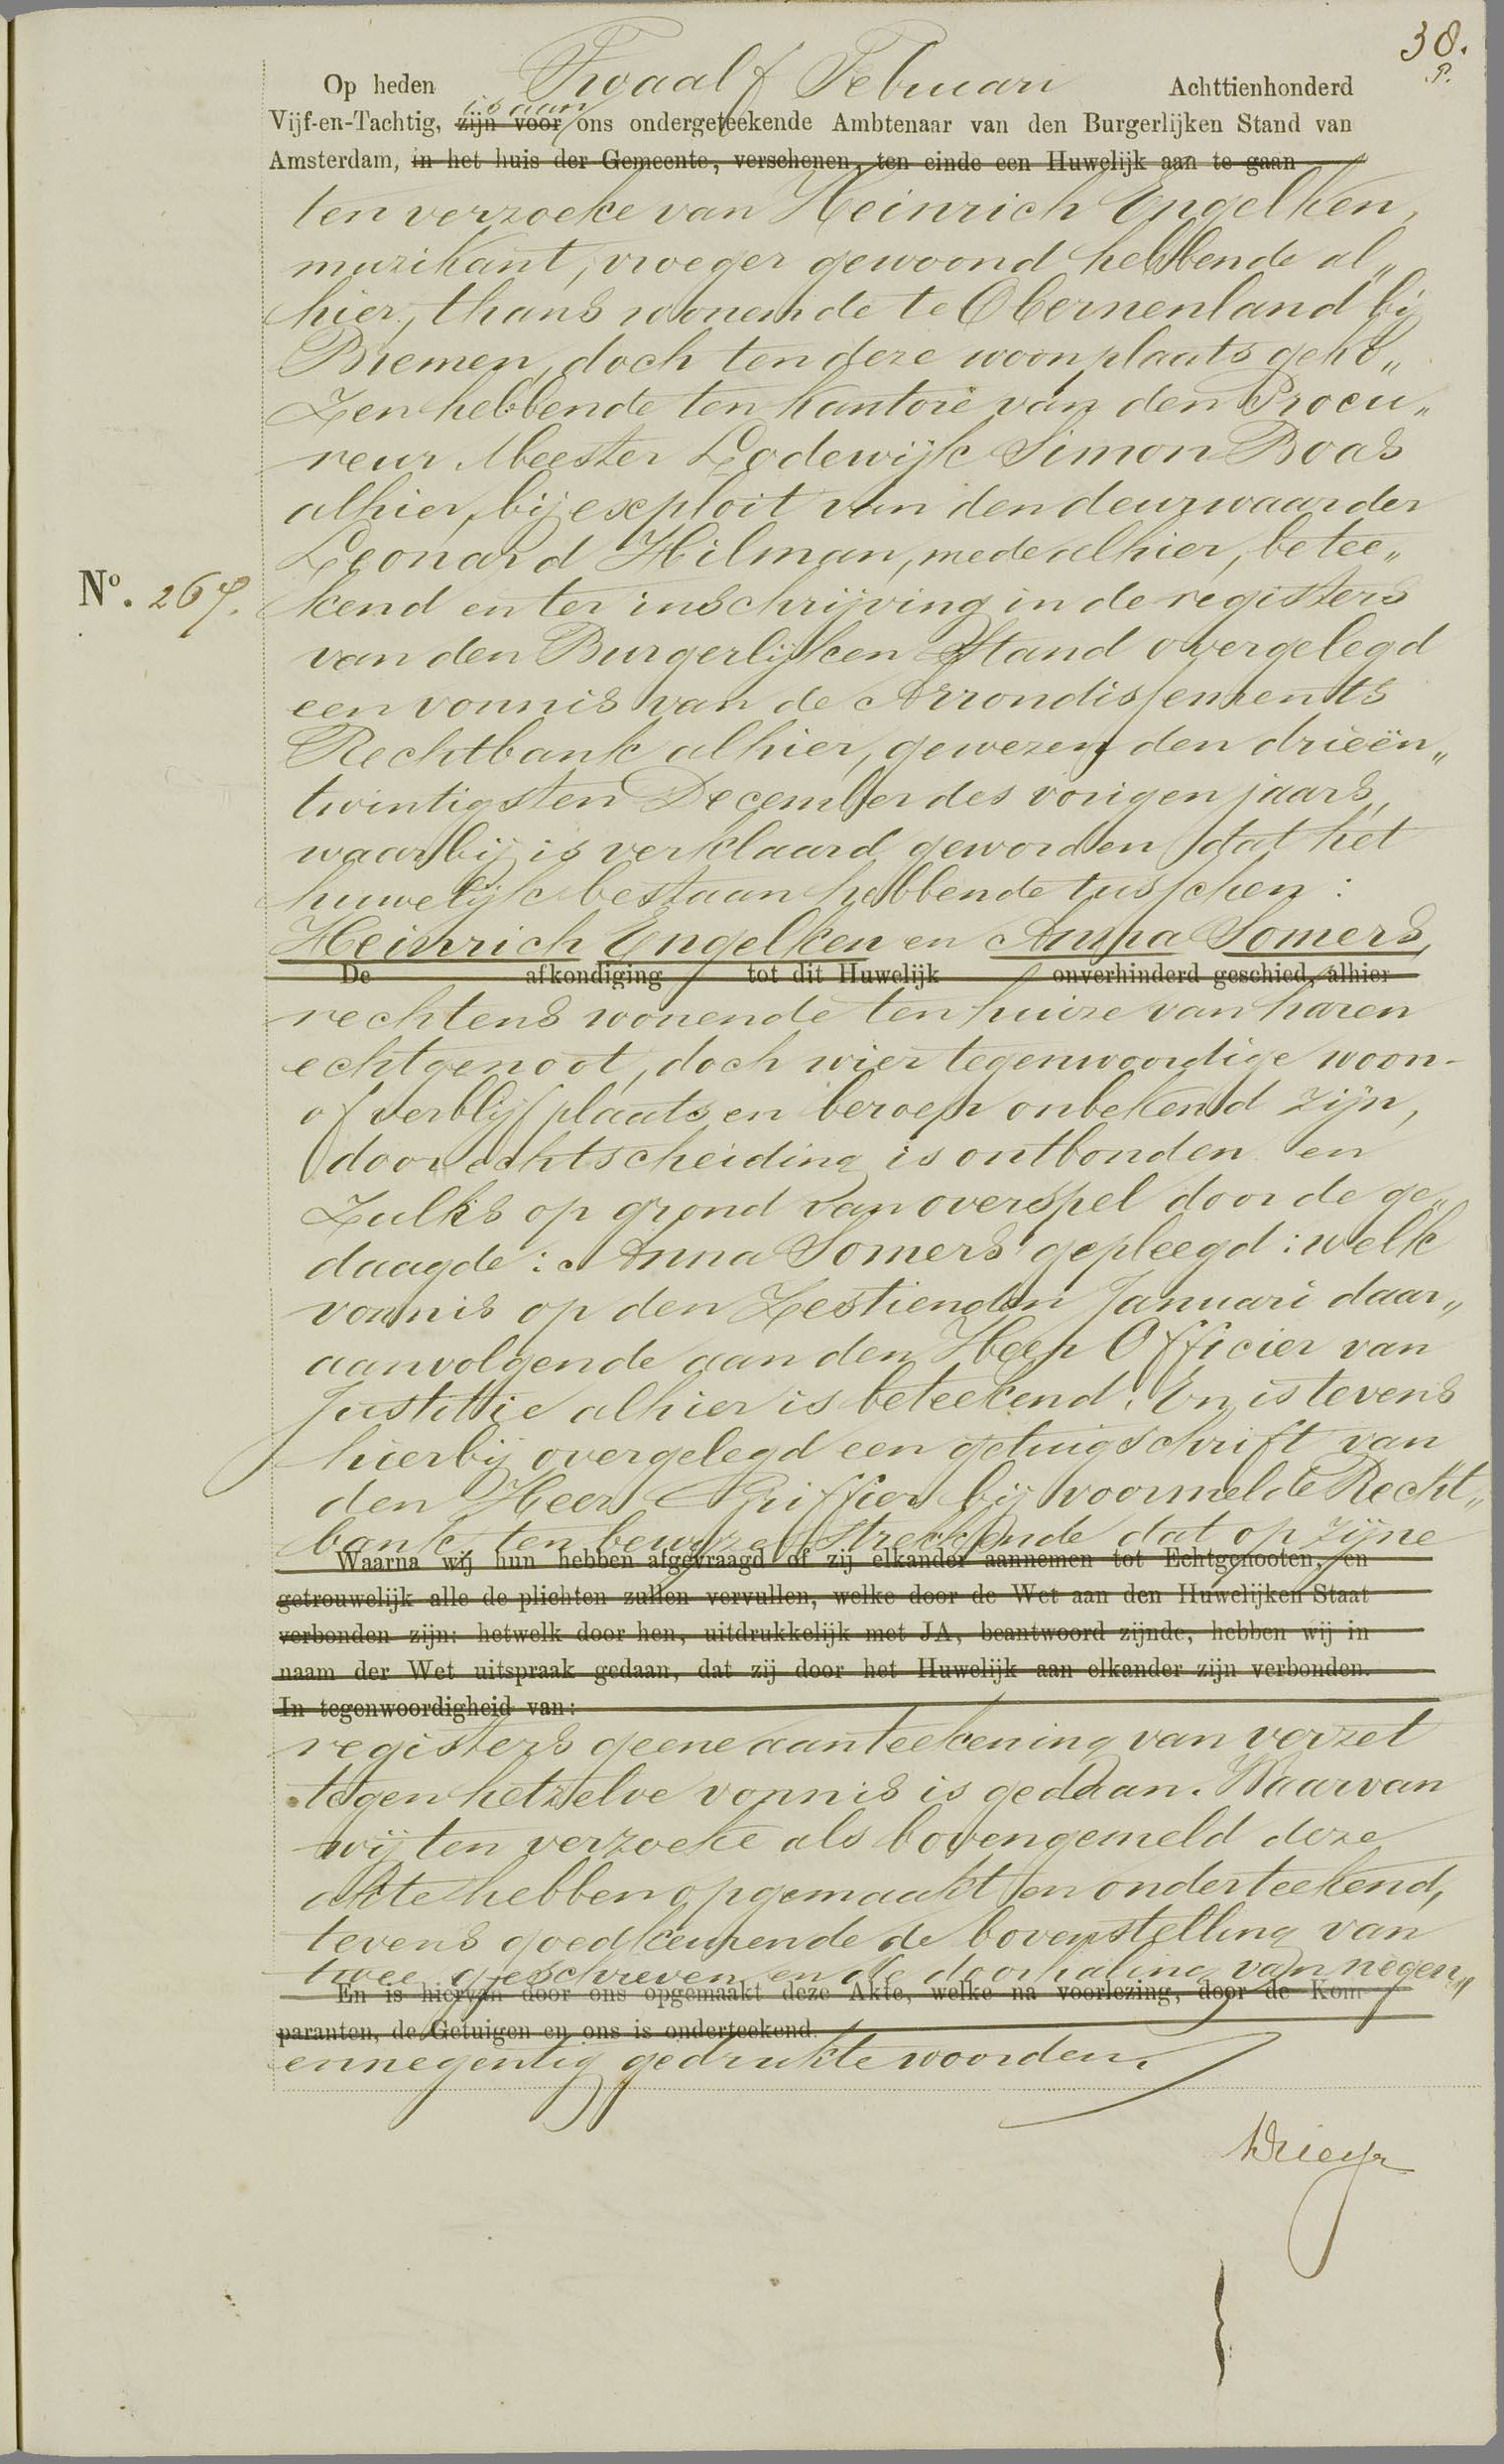 38.
P.
Op heden Twaalf Februari Achttienhonderd
is aan
Vijf-en-Tachtig, zijn voor ons ondergeteekende Ambtenaar van den Burgerlijken Stand van
Amsterdam, in het huis der Gemeente, verschenen, ten einde een Huwelijk aan te gaan
ten verzoeke van Heinrich Engelken,
muzikant, vroeger gewoond hebbende al„
hier, thans wonende te Obernenland bij
Bremen, doch ten deze woonplaats geko„
zen hebbende ten kantore van den Procu„
reur Meester Lodewijk Simon Boas
alhier, bij exploit van den deurwaarder
Leonard Hilman, mede alhier, betee„
No. 267. kend en ter inschrijving in de registers
van den Burgerlijken Stand overgelegd
een vonnis van de Arrondissements
Rechtbank alhier, gewezen den drieën„
twintigsten December des vorigen jaars,
waarbij is verklaard geworden dat het
huwelijk bestaan hebbende tusschen:
Heinrich Engelken en Anna Somers,
De afkondiging tot dit Huwelijk onverhinderd geschied, alhier
rechtens wonende ten huize van haren
echtgenoot, doch wier tegenwoordige woon-
of verblijfplaats en beroep onbekend zijn,
door echtscheiding is ontbonden en
zulks op grond van overspel door de ge„
daagde: Anna Somers gepleegd: welk
vonnis op den Zestienden Januari daar„
aanvolgende aan den Heer Officier van
Justitie alhier is beteekend. En is tevens
hierbij overgelegd een getuigschrift van
den Heer Griffier bij voormelde Recht„
bank, ten bewyze strekkende dat op zijne
Waarna wij hun hebben afgevraagd of zij elkander aannemen tot Echtgenooten, en
getrouwelijk alle de plichten zullen vervullen, welke door de Wet aan den Huwelijken Staat
verbonden zijn: hetwelk door hen, uitdrukkelijk met JA, beantwoord zijnde, hebben wij in
naam der Wet uitspraak gedaan, dat zij door het Huwelijk aan elkander zijn verbonden.
In tegenwoordigheid van:
registers geene aanteekening van verzet
tegen hetzelve vonnis is gedaan. Waarvan
wij ten verzoeke als bovengemeld deze
akte hebben opgemaakt en onderteekend,
tevens goedkeurende de bovenstelling van
twee geschreven en de doorhaling van negen„
En is hiervan door ons opgemaakt deze Akte, welke na voorlezing, door de Kom-
paranten, de Getuigen en ons is onderteekend.
ennegentig gedrukte woorden.